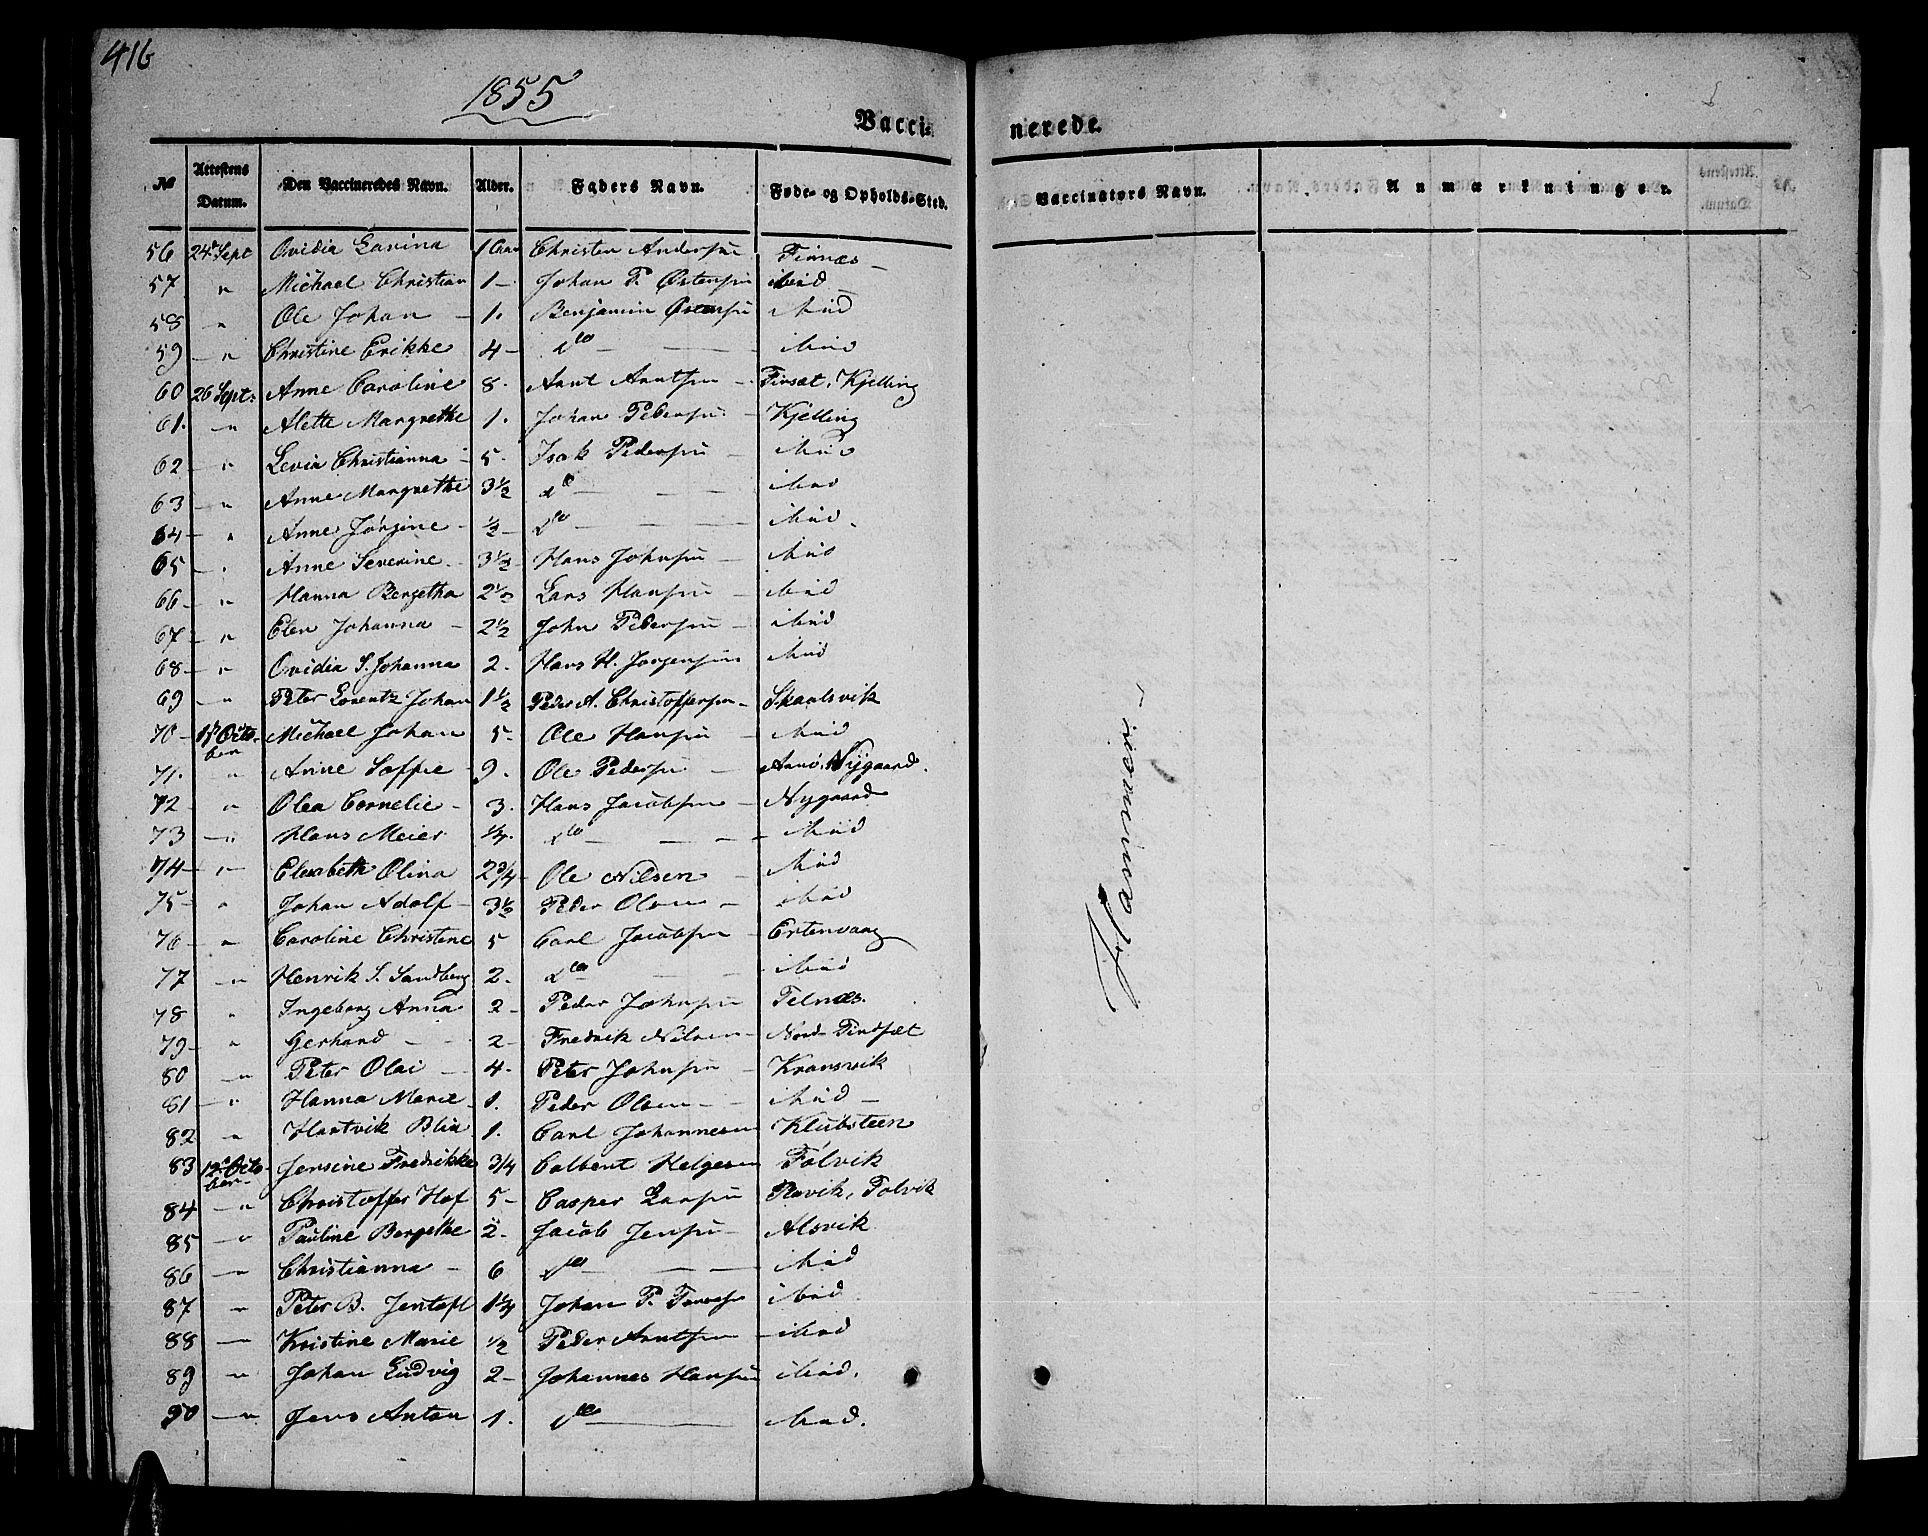 416
1855
Vacci-
nerede.
No Attestens Datum. Den Vaccineredes Navn. Alder. Faders Navn. Føde- og Opholds-Sted. Vaccinators Navn. Anmærkninger.
56 24. Sept Ovidia Lavina 1 Aar Christen Andersen Finnæs
57 " Michael Christian 1 - Johan P. Østensen ibid
58 " Ole Johan - 1. Benjamin Østensen ibid
59 - " Christine Erikke 4 - do - ibid
60 26 Sept: Anne Caroline 8. Arnt Arntsen - Finsæt, Kjelling
61. " Alette Margrethe 1. Johan Pedersen - Kjelling
62 - " Levia Christianna - 5. Isak Pedersen - ibid
63 - " Anne Margrethe 3 1/2 do - ibid
64 - " Anne Jørgine - 1/2 - do - ibid.
65 - " Anne Severine - 3 1/2 - Hans Johnsen - ibid
66 - " Hanna Bergetha 2 1/2 Lars Hansen - ibid
67 - " Elen Johanna - 2 1/2 John Pedersen - ibid
68 - " Ovidia S. Johanna 2. Hans H. Jørgensen ibid
69 - " Peter Lorentz Johan 1 1/2 Peder A. Christoffersen - Skaalsvik
70 - Octo- Michael Johan 5 - Ole Hansen - ibid
ber
71. " Anne Soffie - 9. Ole Pedersen - Arnø, Nygaard.
72 " Olea Cornelie - 3. Hans Jacobsen - Nygaard
73 - " Hans Meier 1/4. do - ibid
74 - " Elisabeth Olina 2 3/4 - Ole Nilsen - ibid
75 - " Johan Adolf - 3 1/2 Peder Olsen - ibid
76 - " Caroline Christine 5 Carl Jacobsen - Ertenvaag
77 " Henrik S. Sandberg 2. do - ibid
78 " Ingeborg Anna 2 - Peder Johnsen Telnæs.
79 - " Gerhard - 2 - Fredrik Nilsen - Nord-Findsæt
80 - " Peter Olai - 4 - Peter Johnsen - Kransvik
81 - " Hanna Marie - 1. Peder Olsen - ibid -
82 " Hartvik Blix 1. Carl Johannesen Klubsteen
83 12. Octo- Jensine Fredrikke 3/4 Colbent Helgesen Følvik
ber
84 - " Christoffer Hof 5 - Casper Larsen Røvik, Følvik
85 - " Pauline Bergithe 2 - Jacob Jensen - Alsvik
86 - " Christianna - 6 do - ibid
87 " Peter B. Jentoft 1 1/4 Johan P. ibid
88 - " Kristine Marie 1/2 Peder Arntsen - ibid
89 " Johan Ludvig 2 - Johannes Hansen ibid.
90 - " Jens Anton 1. do - ibid.